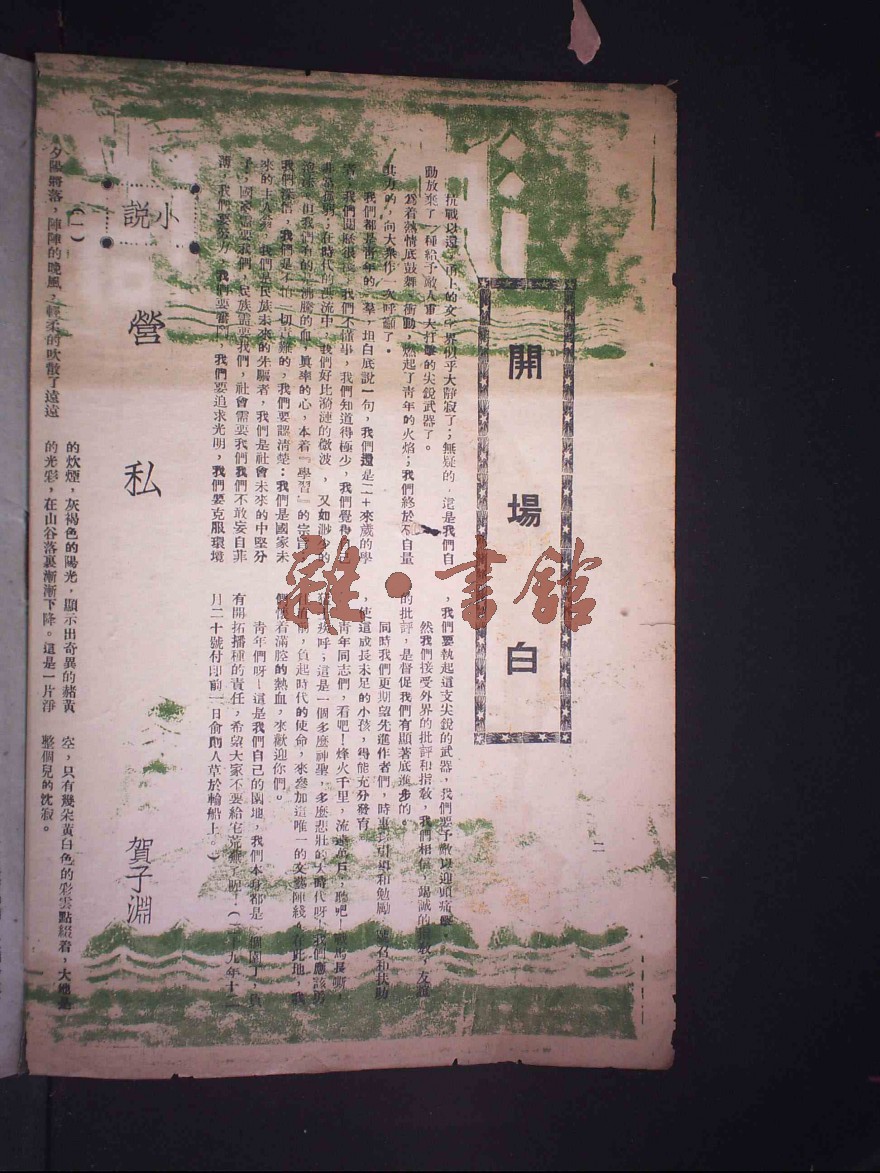 開場白
抗戰以還，
的文字界似乎大靜寂了；無疑的，這是我們自
動放棄了一種給予敵人重大打擊的尖銳武器了。
為着熱情底鼓舞，衝動，燃起了青年的火焰；我們終於不自量
其力的，向大衆作一次呼籲了。
我們都是青年的一羣，坦白底說一句，我們還是二十來歲的學
我們閱歷很淺，我們不懂事，我們知道得極少，我們覺得自己
在時代的洪流中，我們好比漪漣的微波，又如渺少的
泡沫，但我們有的是沸騰的血，眞率的心，本着『學習』的宗旨，
我們深信，我們是不怕一切苦難的，我們要認清楚：我們是國家未
來的主人翁，我們是民族未來的先驅者，我們是社會未來的中堅分
子；國家需要我們，民族需要我們，社會需要我們我們不敢妄自菲
薄，我們要努力，我們要奮鬥，我們要追求光明，我們要克服環境
，我們要執起這支尖銳的武器，我們要予敵以迎頭痛擊。
然我們接受外界的批評和指教，我們相信，竭誠的指教，友誼
的批評，是督促我們有顯著底進步的。
同時我們更期望先進作者們，時東時引導和勉勵
和扶助
，使這成長未足的小孩，得能充分發育。
青年同志們，看吧！烽火千里，流
戶，聽吧！戰馬長嘶，
疾呼；這是一個多麽神聖，多麽悲壯的大時代呀！我們應該勇
往直前，負起時代的使命，來參加這唯一的文藝陣綫。在此地，我
們懷着滿腔的熱血，來歡迎你們。
青年們呀！這是我們自己的園地，我們本身都是一個園丁，負
有開拓播種的責任，希望大家不要給它荒蕪了呢！（二十九年十二
月二十號付印前一日
人草於輪船上。）
二
小說
營私
賀子淵
（一）
夕陽將落，陣陣的晚風，輕柔的吹散了遠遠
的炊煙，灰褐色的陽光，顯示出奇異的赭黃
的光彩，在山谷落裏漸漸下降。這是一片淨
空，只有幾朵黃白色的彩雲點綴着，大地是
整個兒的沈寂。
雜·書館